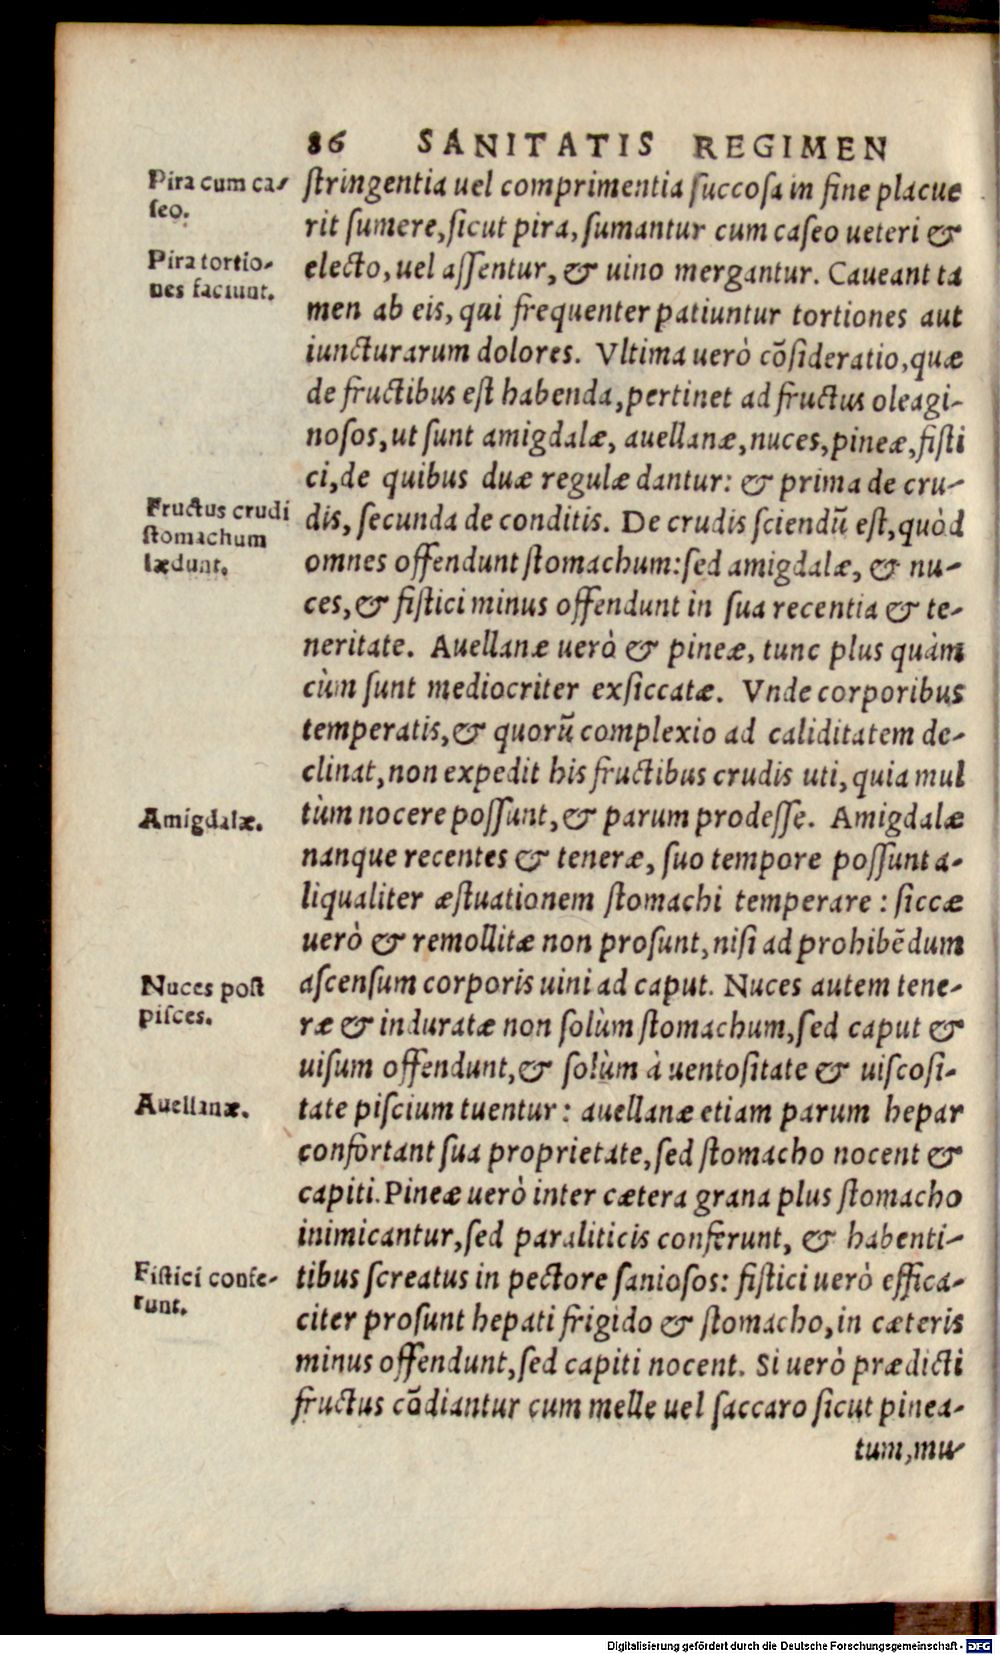 86 SANITATIS REGIMEN
Pira cum ca-
seo.
Pira tortio-
nes faciunt.
Fructus crudi
stomachum
lædunt.
Amigdalæ.
Nuces post
pisces.
Auellanæ.
Fistici confe-
runt.
stringentia uel comprimentia succosa in fine placue
rit sumere, sicut pira, sumantur cum caseo ueteri &
electo, uel assentur, & uino mergantur. Caueant ta
men ab eis, qui frequenter patiuntur tortiones aut
iuncturarum dolores. Vltima uerò cõsideratio, quæ
de fructibus est habenda, pertinet ad fructus oleagi-
nosos, ut sunt amigdalæ, auellanæ, nuces, pineæ, fisti
ci, de quibus duæ regulæ dantur: & prima de cru-
dis, secunda de conditis. De crudis sciendũ est, quòd
omnes offendunt stomachum: sed amigdalæ, & nu-
ces, & fistici minus offendunt in sua recentia & te-
neritate. Auellanæ uerò & pineæ, tunc plus quàm
cùm sunt mediocriter exsiccatæ. Vnde corporibus
temperatis, & quorũ complexio ad caliditatem de-
clinat, non expedit his fructibus crudis uti, quia mul
tùm nocere possunt, & parum prodesse. Amigdalæ
nanque recentes & teneræ, suo tempore possunt a-
liqualiter æstuationem stomachi temperare : siccæ
uerò & remollitæ non prosunt, nisi ad prohibẽdum
ascensum corporis uini ad caput. Nuces autem tene-
ræ & induratæ non solùm stomachum, sed caput &
uisum offendunt, & solùm à uentositate & uiscosi-
tate piscium tuentur : auellanæ etiam parum hepar
confortant sua proprietate, sed stomacho nocent &
capiti. Pineæ uerò inter cætera grana plus stomacho
inimicantur, sed paraliticis conferunt, & habenti-
tibus screatus in pectore saniosos: fistici uerò effica-
citer prosunt hepati frigido & stomacho, in cæteris
minus offendunt, sed capiti nocent. Si uerò prædicti
fructus cõdiantur cum melle uel saccaro sicut pinea-
tum, mu-
Digitalisierung gefördert durch die Deutsche Forschungsgemeinschaft - DFG